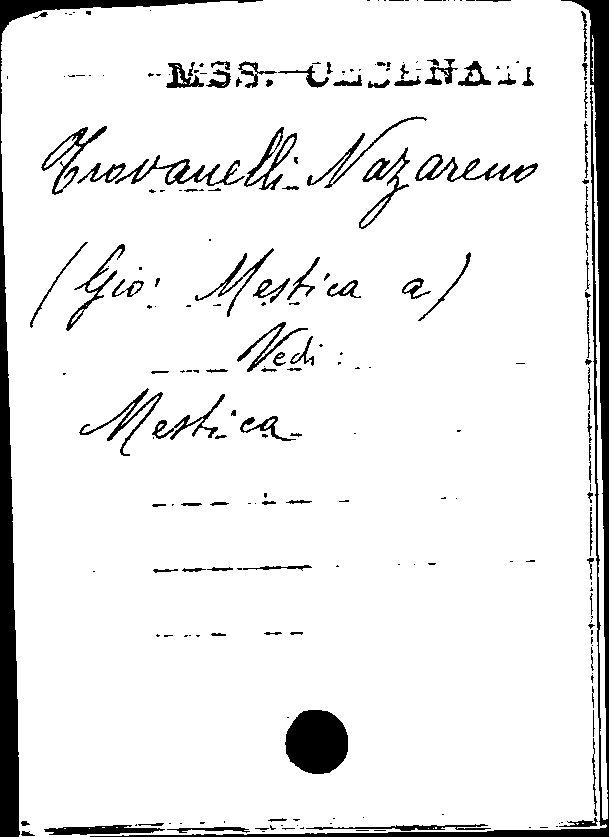 MSS. CESENATI
Trovanelli Nazareno
(Gio: Mestica a)
Vedi:
Mestica